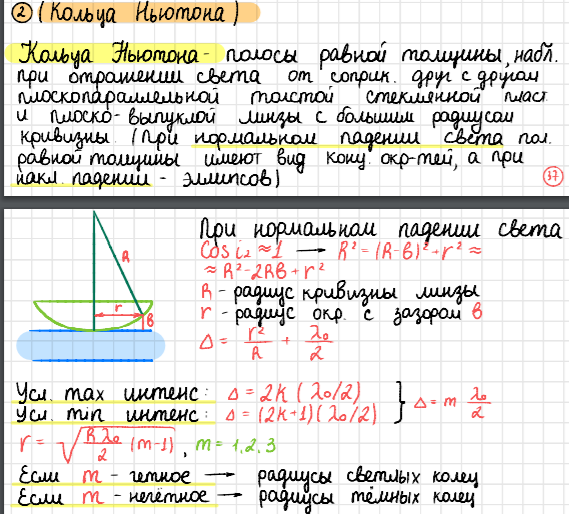 ② (Кольца Ньютона)
Кольца Ньютона - полосы равной толщины, набл.
при отражении света от соприк. друг с другом
плоскопараллельной толстой стеклянной пласт.
и плоско-выпуклой линзы с большим радиусом
кривизны. (При нормальном падении света пол.
равной толщины имеют вид конц. окр-тей, а при
накл. падении - эллипсов)
37
При нормальном падении света
cos i₂ ≈ 1 → R² = (R-b)² + r² ≈
≈ R² - 2Rb + r²
R - радиус кривизны линзы
r - радиус окр. с зазором b
Δ = r²/R + λ₀/2
R
r
b
Усл. max интенс: Δ = 2k (λ₀/2)
Усл. min интенс: Δ = (2k+1)(λ₀/2) } Δ = m λ₀/2
r = √(Rλ₀/2 (m-1)), m = 1,2,3
Если m - четное → радиусы светлых колец
Если m - нечётное → радиусы тёмных колец